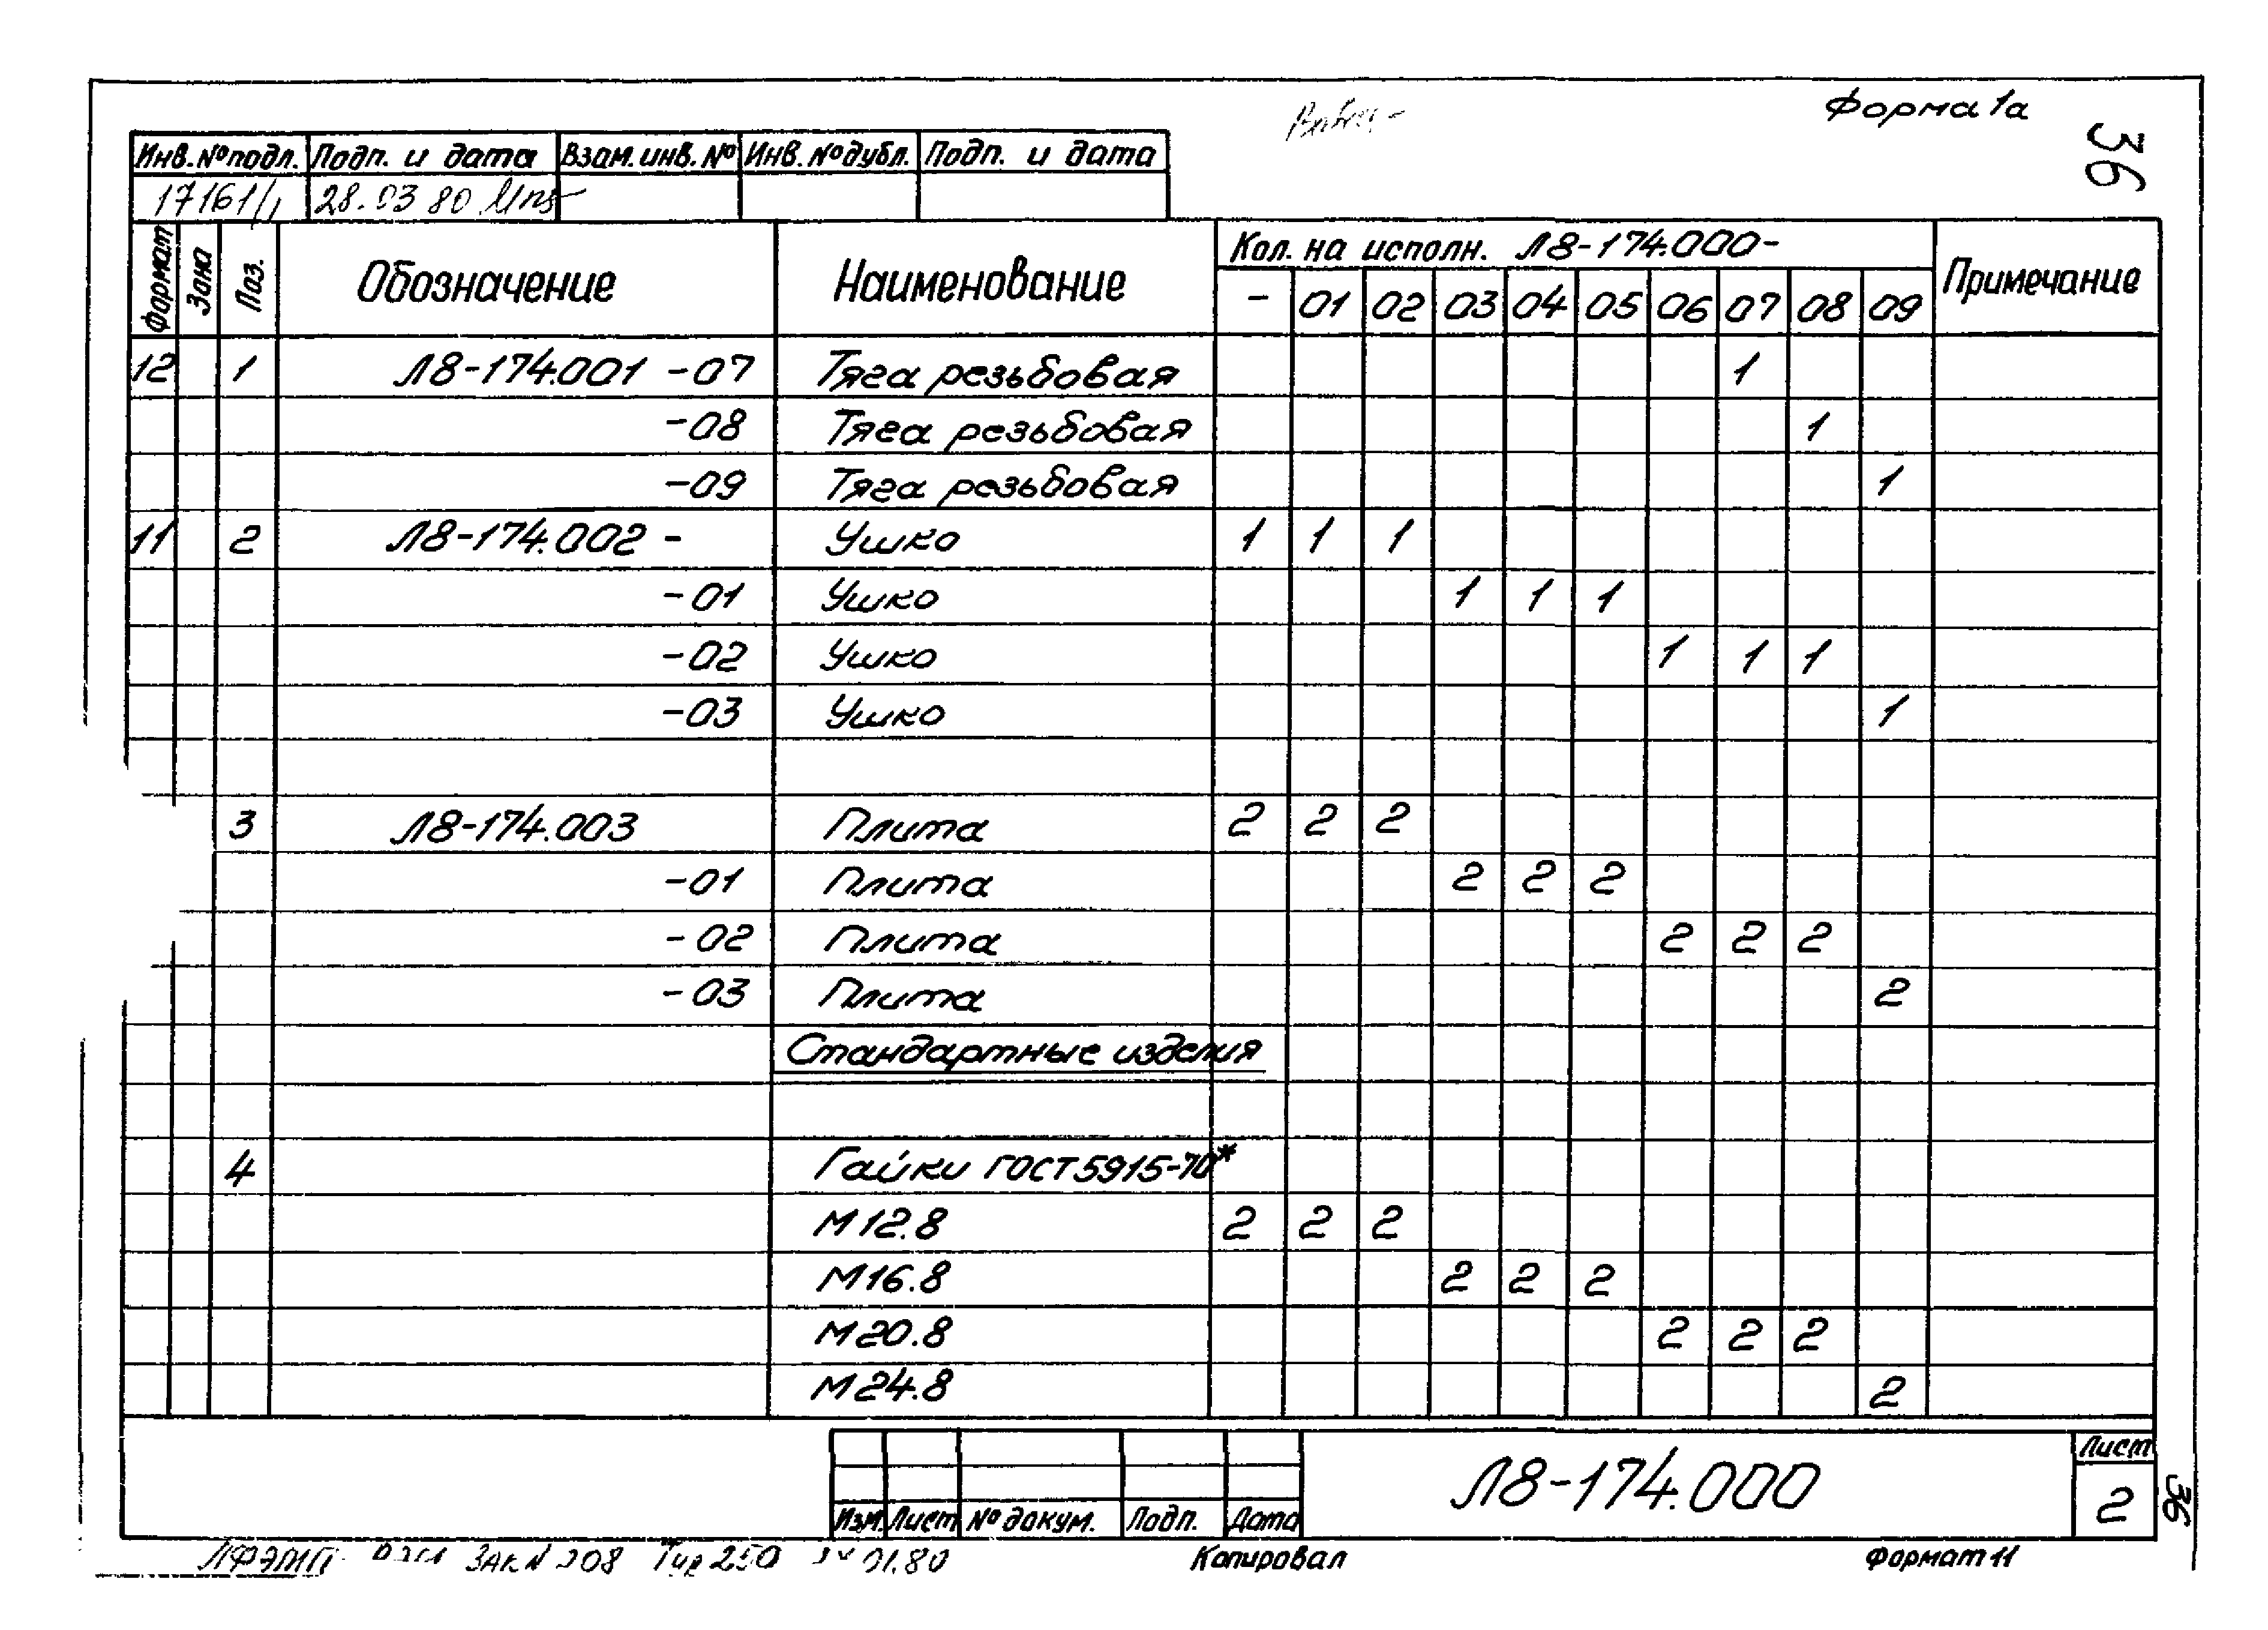 Форма 1а
36
Инв.№подл. Подп. и дата Взам.инв.№ Инв.№дубл. Подп. и дата
17161/1 28.03 80
Формат Зона Поз. Обозначение Наименование Кол. на исполн. Л8-174.000- Примечание
- 01 02 03 04 05 06 07 08 09
12 1 Л8-174.001 -07 Тяга резьбовая 1
-08 Тяга резьбовая 1
-09 Тяга резьбовая 1
11 2 Л8-174.002 - Ушко 1 1 1
-01 Ушко 1 1 1
-02 Ушко 1 1 1
-03 Ушко 1
3 Л8-174.003 Плита 2 2 2
-01 Плита 2 2 2
-02 Плита 2 2 2
-03 Плита 2
Стандартные изделия
4 Гайки ГОСТ 5915-70*
М12.8 2 2 2
М16.8 2 2 2
М20.8 2 2 2
М24.8 2
Изм. Лист № докум. Подп. Дата
Л8-174.000
Лист
2
36
ЛФЭМП Зак N 208 Тир 250 01.80
Копировал
Формат 11